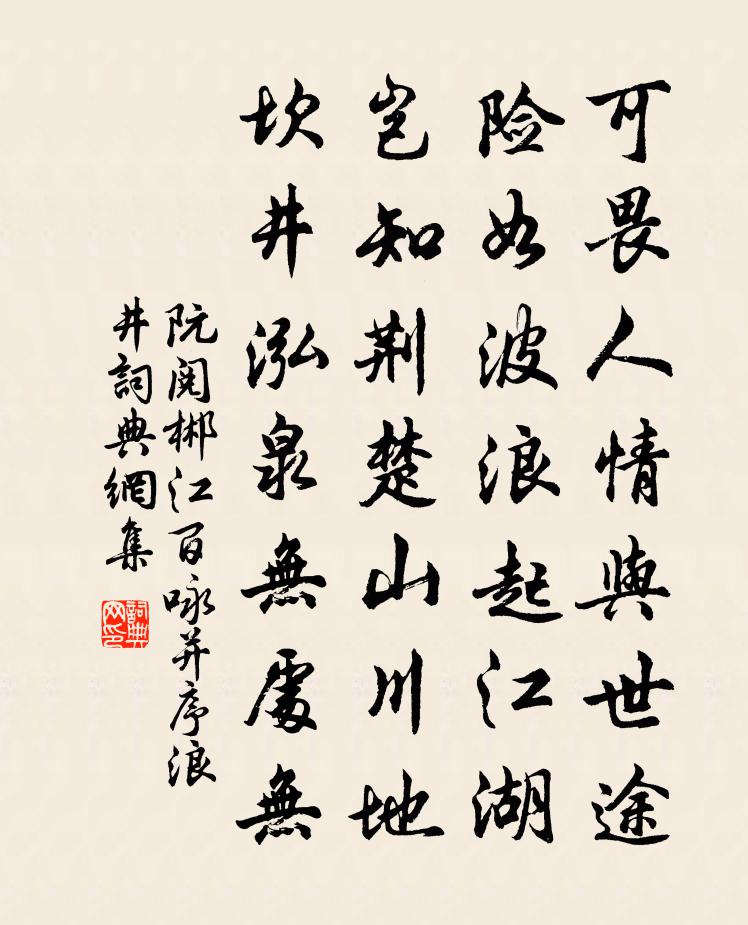 可畏人情與世途
险如波浪起江湖
岂知荆楚山川地
坎井泓泉無處無
阮阅郴江百咏并序浪
井詞典網集
詞典
网印